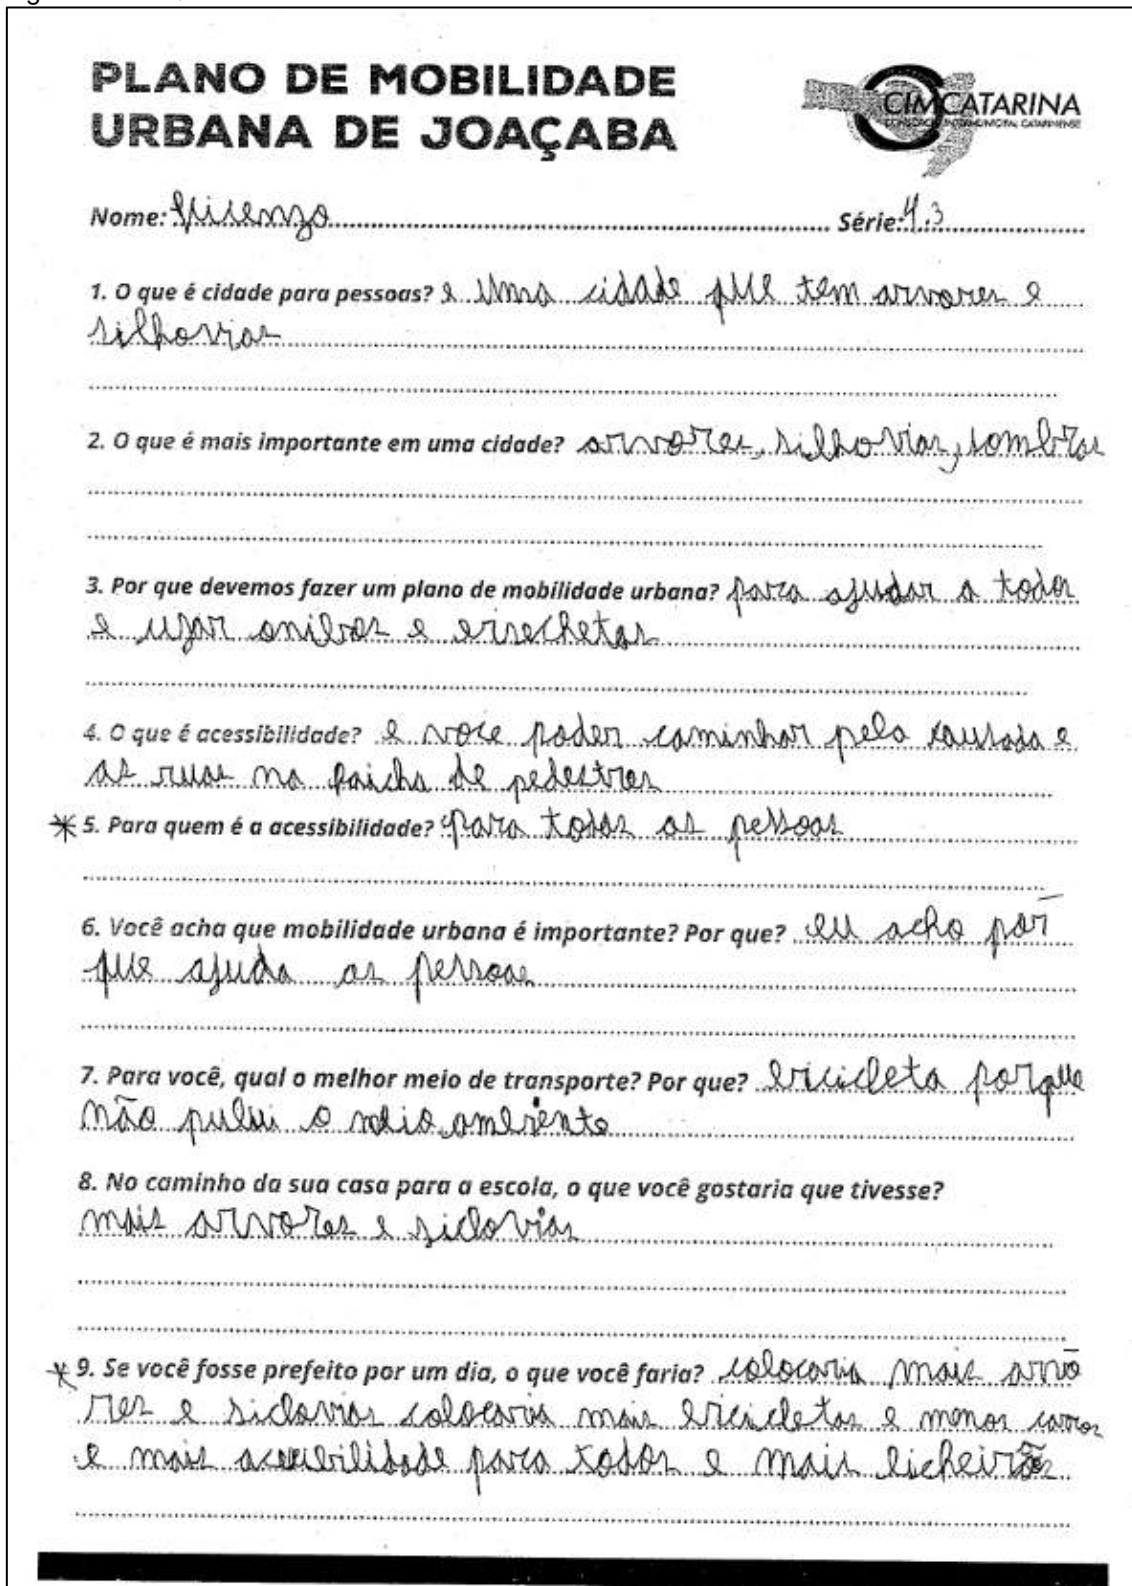 PLANO DE MOBILIDADE
URBANA DE JOAÇABA
CIMCATARINA
CONSÓRCIO INTERMUNICIPAL CATARINENSE
Nome: Série: 4.3
1. O que é cidade para pessoas? e uma cidade que tem arvores e
silhovias
2. O que é mais importante em uma cidade? arvores, silhovias, sombras
3. Por que devemos fazer um plano de mobilidade urbana? para ajudar a todos
e uzar onibos e
4. O que é acessibilidade? e voce poder caminhar pela causada e
as ruas na faicha de pedestres
* 5. Para quem é a acessibilidade? para todas as pessoas
6. Você acha que mobilidade urbana é importante? Por que? eu acho por
que ajuda as pessoas
7. Para você, qual o melhor meio de transporte? Por que? bicicleta porque
não pului o meio ambiente
8. No caminho da sua casa para a escola, o que você gostaria que tivesse?
mais arvores e siclovias
* 9. Se você fosse prefeito por um dia, o que você faria? colocaria mais arvo
res e siclovias colocaria mais bicicletas e menos carros
e mais acecibilidade para todos e mais licheirões